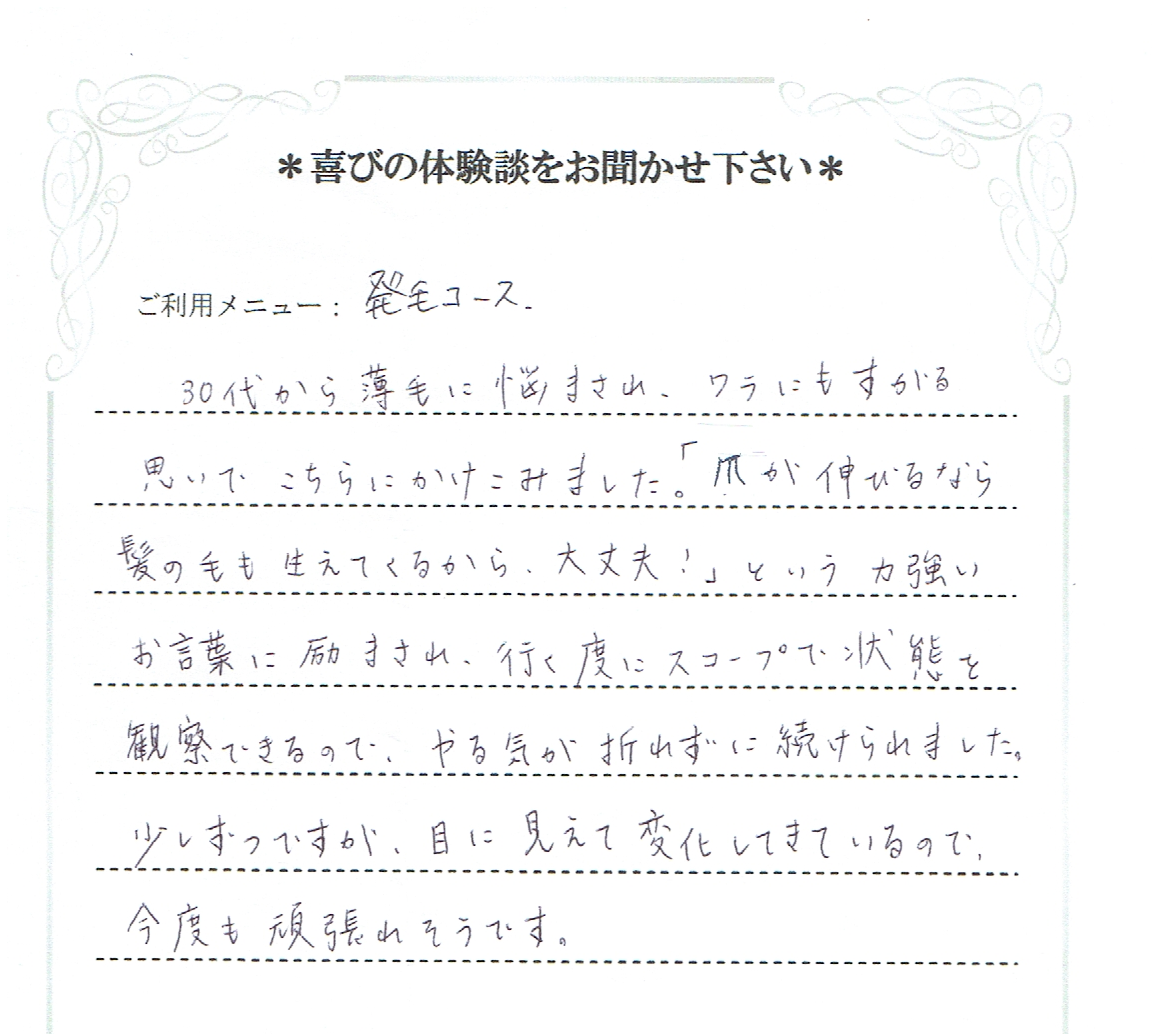 ＊喜びの体験談をお聞かせ下さい＊
ご利用メニュー：発毛コース.
30代から薄毛に悩まされ、ワラにもすがる
思いでこちらにかけこみました。「爪が伸びるなら
髪の毛も生えてくるから、大丈夫！」という力強い
お言葉に励まされ、行く度にスコープで状態を
観察できるので、やる気が折れずに続けられました。
少しずつですが、目に見えて変化してきているので、
今度も頑張れそうです。